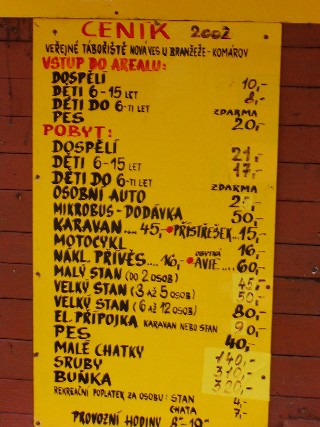 CENÍK 2002
VEŘEJNÉ TÁBOŘIŠTĚ NOVÁ VES U BRANŽEŽE - KOMÁROV
VSTUP DO AREALU:
DOSPĚLÍ 10,-
DĚTI 6-15 LET 8,-
DĚTI DO 6-TI LET ZDARMA
PES 20,-
POBYT:
DOSPĚLÍ 21,-
DĚTI 6-15 LET 17,-
DĚTI DO 6-TI LET ZDARMA
OSOBNÍ AUTO
MIKROBUS - DODÁVKA 50,-
KARAVAN.... 45,- PŘÍSTŘEŠEK.. 15,-
MOTOCYKL 16,-
NÁKL. PŘÍVĚS.... 16,- OBYTNÁ AVIE.... 60,-
MALÝ STAN (DO 2 OSOB) 45,-
VELKÝ STAN (3 AŽ 5 OSOB) 50,-
VELKÝ STAN (6 AŽ 12 OSOB) 80,-
EL. PŘÍPOJKA KARAVAN NEBO STAN 90,-
PES 40,-
MALÉ CHATKY 140,-
SRUBY 310,-
BUŇKA 320,-
REKREAČNÍ POPLATEK ZA OSOBU: STAN 4,-
CHATA 7,-
PROVOZNÍ HODINY 8-19